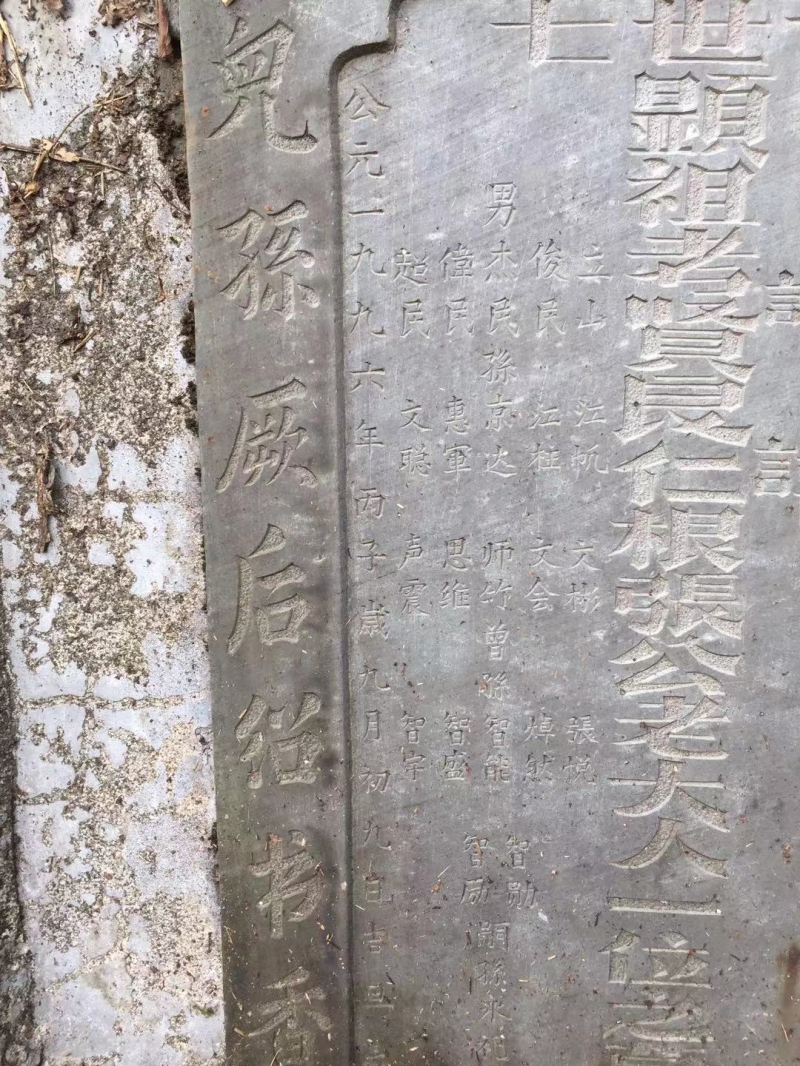 訁
訁
七
世顕祖考賢良仁根張公老大人一位之
立山 江帆 文彬 張悦
俊民 江柱 文会 焯然
智勋
男杰民 孫京达 师竹 曾孫智能
嗣孫永
偉民 惠軍 思维 智盛
智励
起民 文聪 声震 智宇
公元一九九六年丙子歲九月初九日吉
兒孫厥后继书香